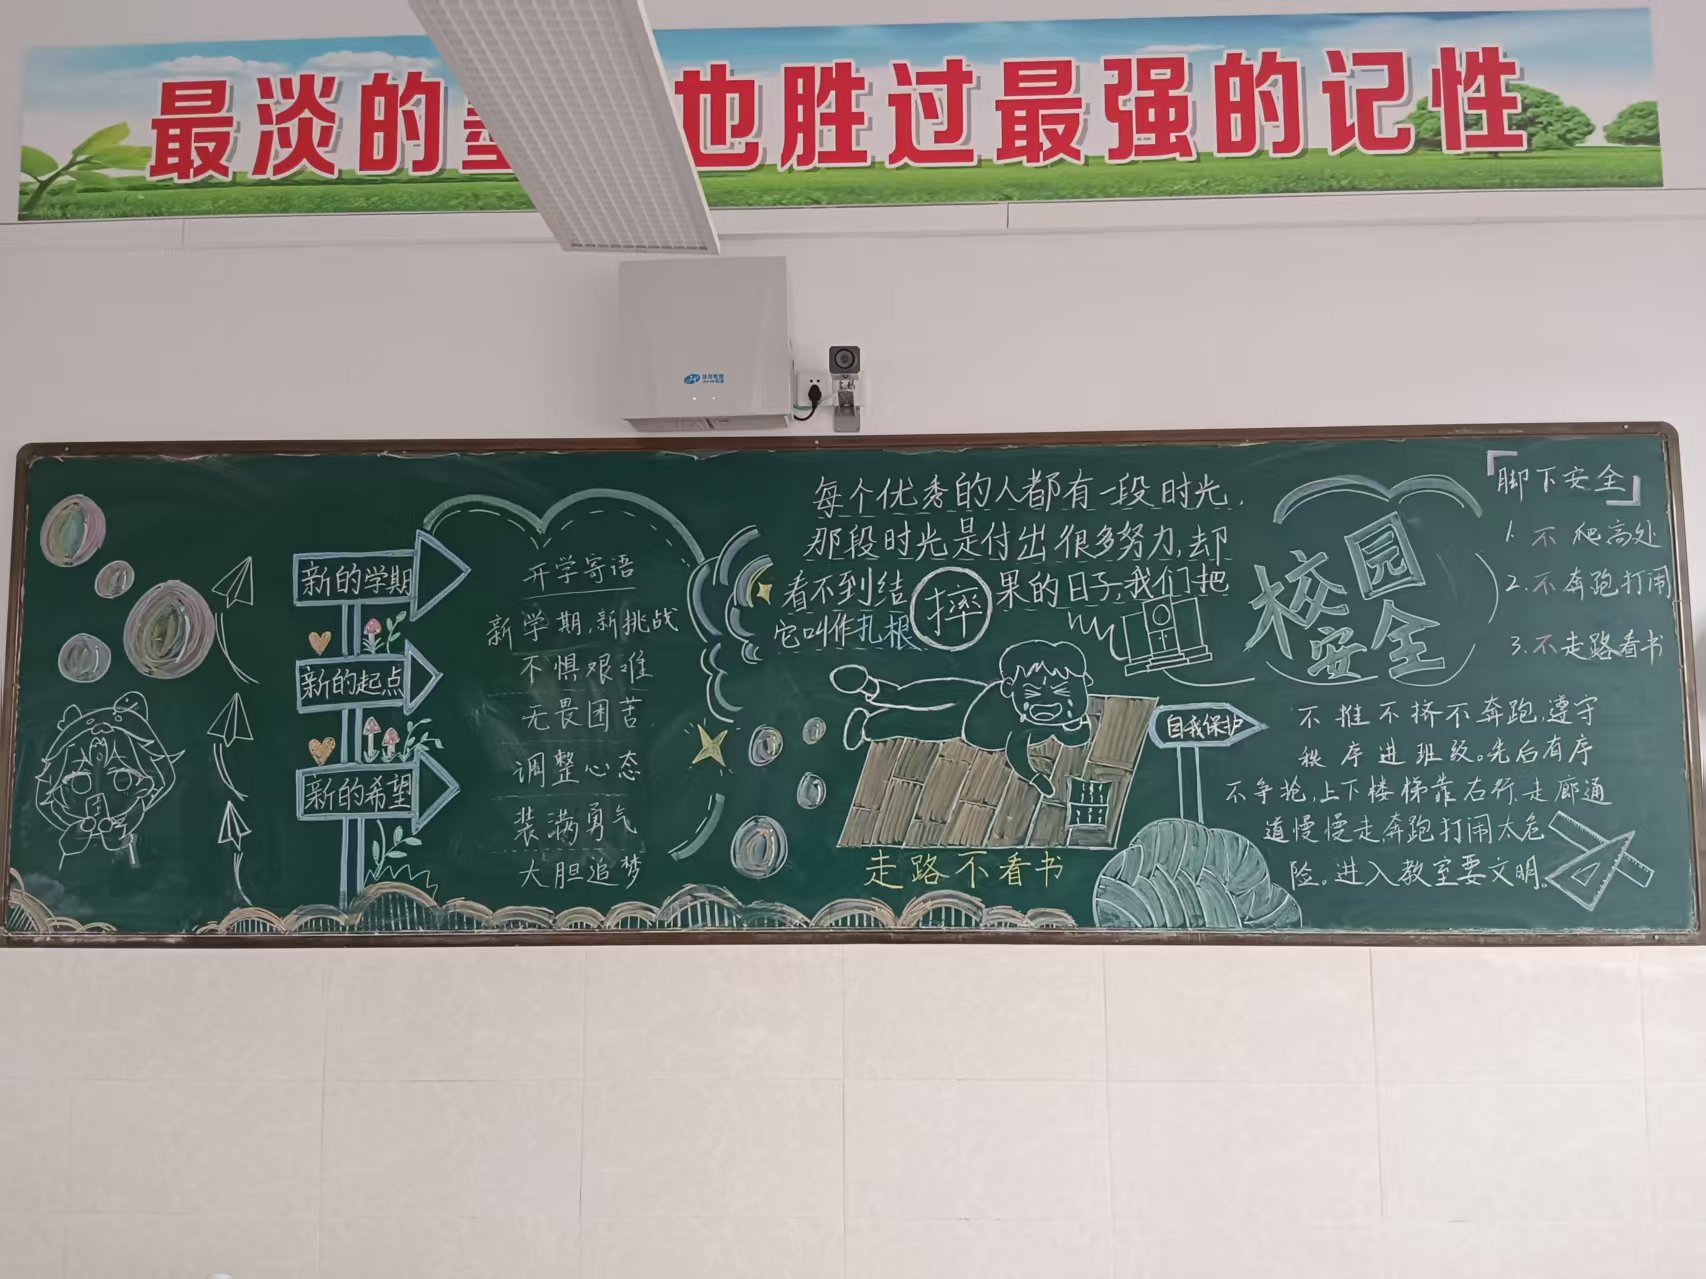 最淡的墨 也胜过最强的记性
新的学期
新的起点
新的希望
开学寄语
新学期,新挑战
不惧艰难
无畏困苦
调整心态
装满勇气
大胆追梦
每个优秀的人都有一段时光,
那段时光是付出很多努力,却
看不到结果的日子,我们把
它叫作扎根
摔
走路不看书
校园
安全
「脚下安全」
1. 不爬高处
2. 不奔跑打闹
3. 不走路看书
自我保护
不推不挤不奔跑,遵守
秩序进班级。先后有序
不争抢,上下楼梯靠右行.走廊通
道慢慢走,奔跑打闹太危
险。进入教室要文明。